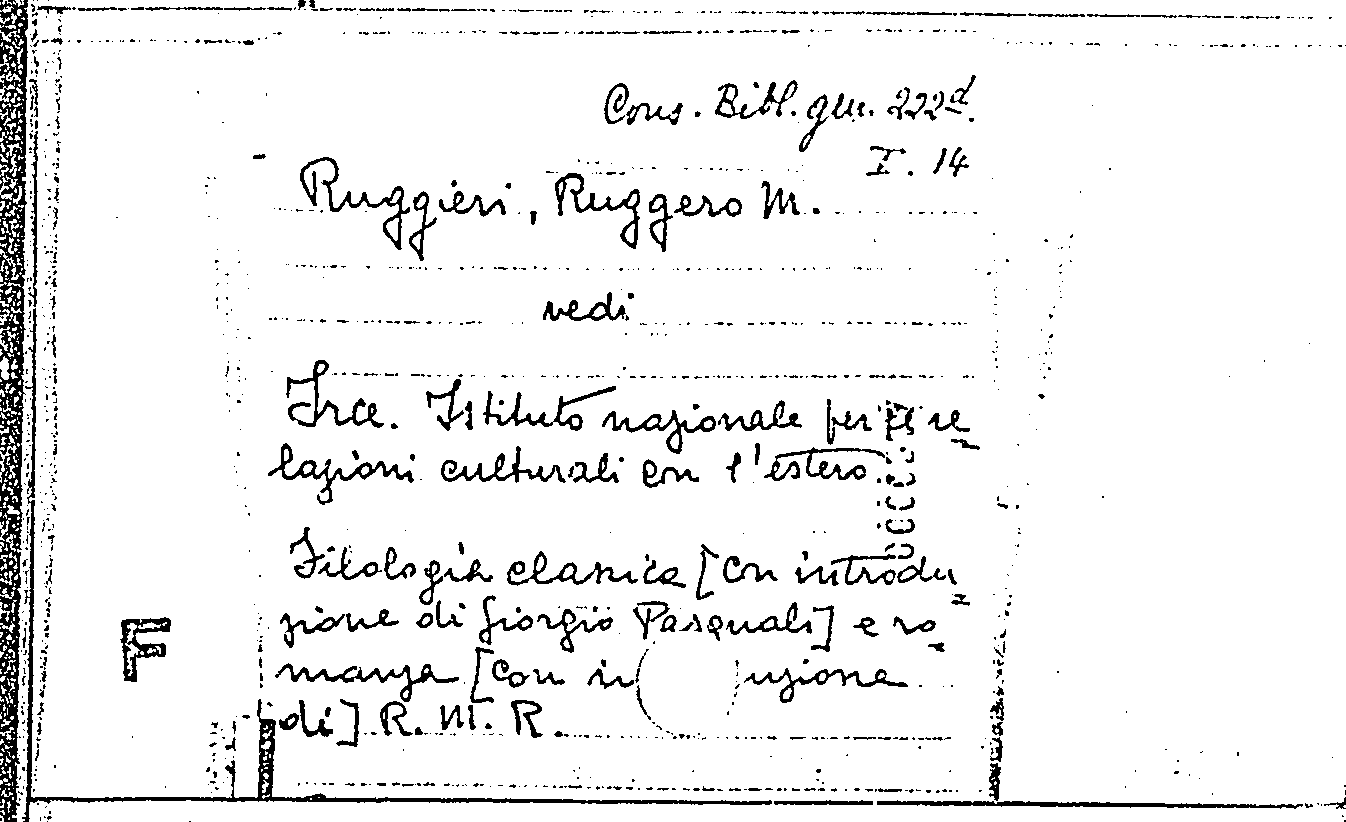 Cons. Bibl. gen. 222d.
I. 14
Ruggieri, Ruggero M.
vedi
Irce. Istituto nazionale per le re=
lazioni culturali con l'estero.
Filologia classica [con introdu=
zione di Giorgio Pasquali] e ro=
manza [con in uzione
di] R. M. R.
F